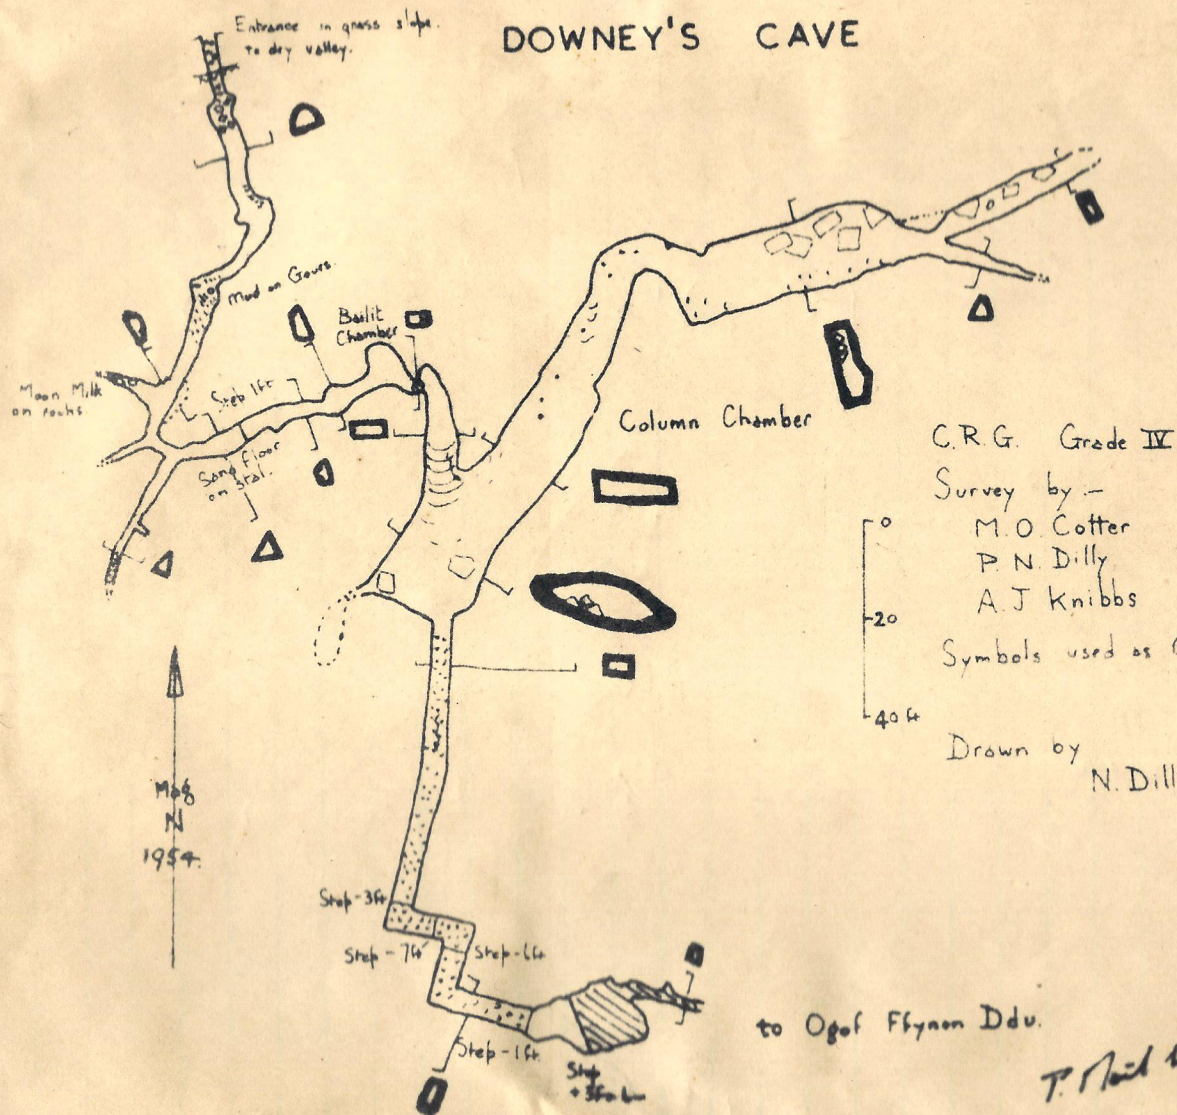 DOWNEY'S CAVE
Entrance in grass slope.
to dry valley.
Mud on Gours.
Bailit
Chamber
Moon Milk
on rocks.
Step 1ft
Sand floor
on stal.
Column Chamber
C.R.G. Grade IV
Survey by :-
M.O. Cotter
P.N. Dilly
A.J Knibbs
0
20
40 ft
Symbols used as
Drawn by
N. Dill
Mag
N
1954.
Step - 3ft
Step - 7ft
Step - 6ft
Step - 1ft.
Step
to Ogof Ffynon Ddu.